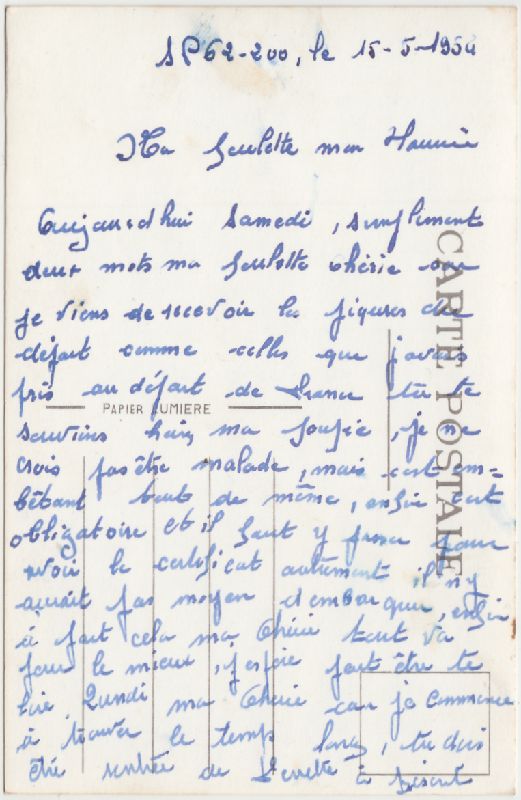 SP 62-200, le 15-5-1954
Ma mon
Aujourd hui Samedi, simplement
deux mots ma chérie car
je viens de recevoir la piqures de
départ comme celles que j'avais
pris au départ de France tu te
PAPIER LUMIERE
souviens hein ma, je ne
crois pas être malade, mais cest em-
bêtant tout de même, enfin cest
obligatoire et il faut y passer pour
avoir le certificat autrement il n'y
aurait pas moyen d embarquer, enfin
à part cela ma Chérie tout va
pour le mieux, j'espère peut être te
lire Lundi ma Chérie car je commence
à trouver le temps long, tu dois
être rentrée de à présent
CARTE POSTALE